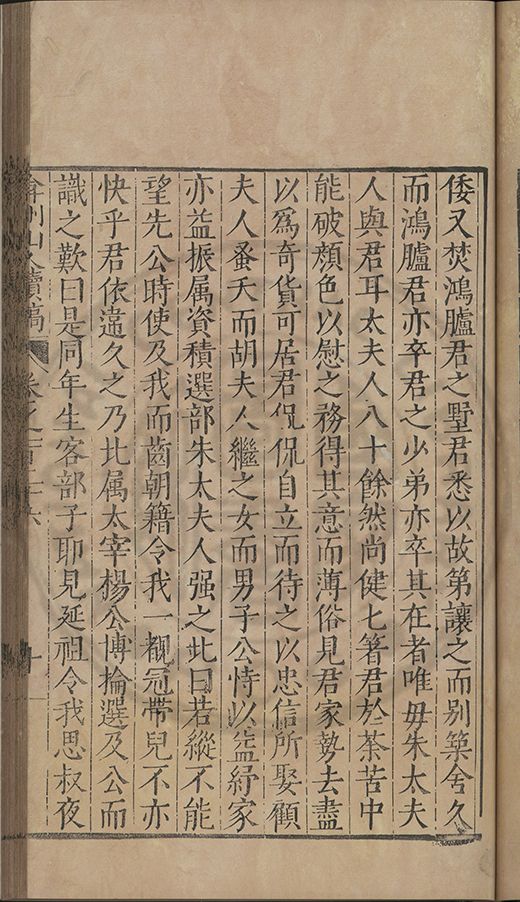 倭又焚鴻臚君之墅君悉以故第讓之而別築舍久
而鴻臚君亦卒君之少弟亦卒其在者唯毋朱太夫
人與君耳太夫人八十餘然尚健七箸君於荼苦中
能破顔色以慰之務得其意而薄俗見君家勢去盡
以爲奇貨可居君侃侃自立而待之以忠信所娶顧
夫人蚤夭而胡夫人繼之女而男子公恃以益紓家
亦益振属資積選部朱太夫人强之北曰若縱不能
望先公時使及我而齒朝籍令我一覩冠帶兒不亦
快乎君依違久之乃北属太宰楊公博掄選及公而
識之歎曰是同年生客部子耶見延祖令我思叔夜
弇州山人續稿 卷之一百二十六 十一